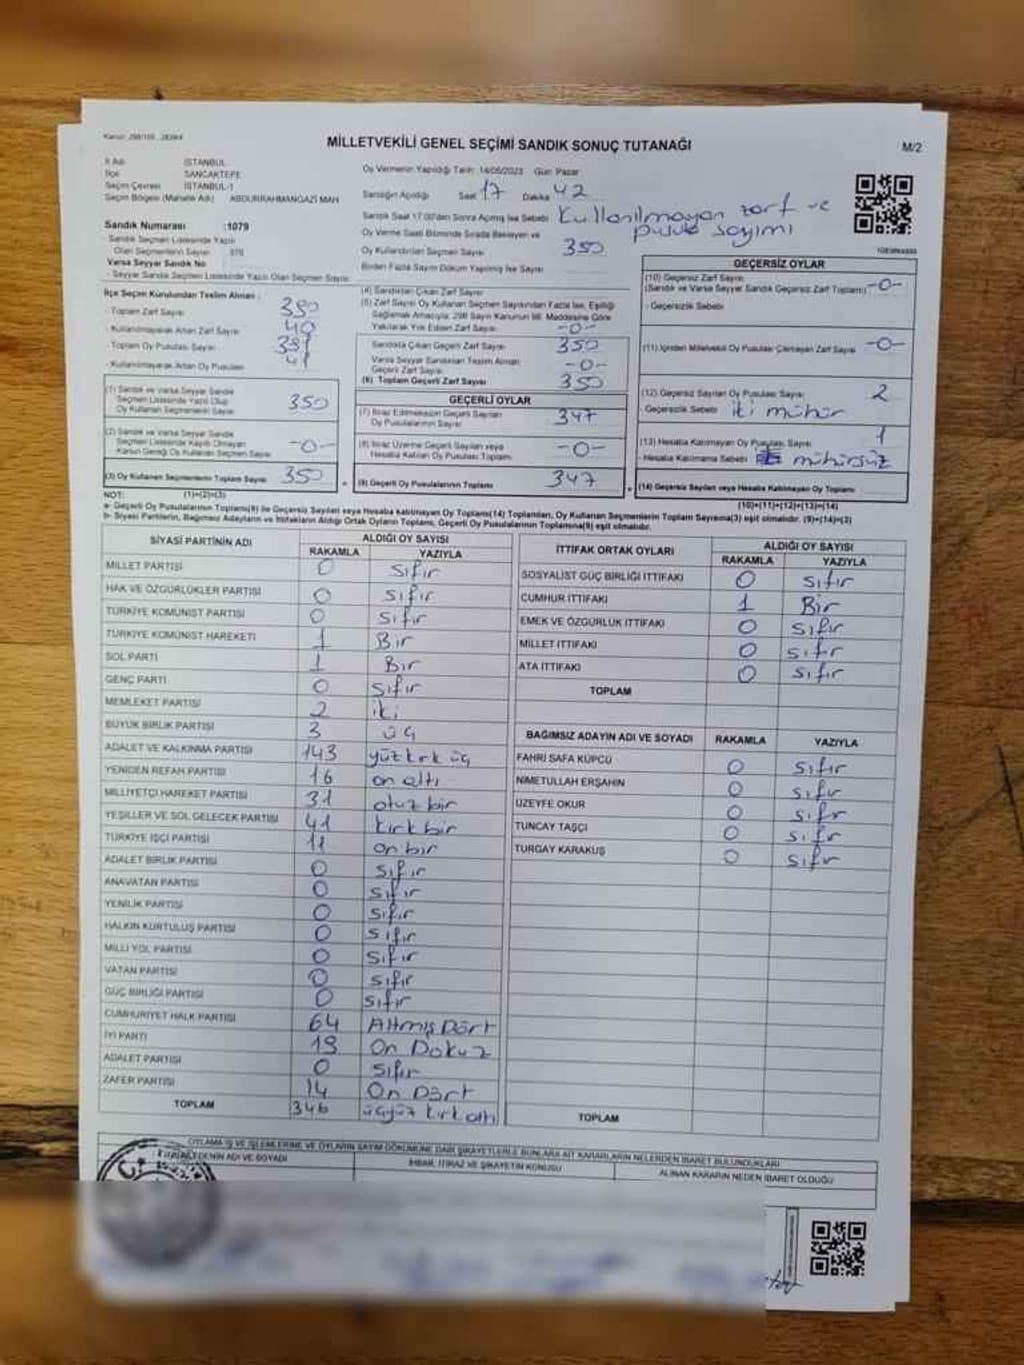 MİLLETVEKİLİ GENEL SEÇİMİ SANDIK SONUÇ TUTANAĞI
M/2
İl Adı İSTANBUL
İlçe SANCAKTEPE
Seçim Çevresi İSTANBUL-1
Seçim Bölgesi (Mahalle Adı) ABDURRAHMANGAZİ MAH
Sandık Numarası :1079
Sandık Seçmen Listesinde Yazılı
Olan Seçmenlerin Sayısı
Varsa Seyyar Sandık No
Seyyar Sandık Seçmen Listesinde Yazılı Olan Seçmen Sayısı
Oy Vermenin Yapıldığı Tarih 14/05/2023 Gün Pazar
Sandığın Açıldığı Saat 17 Dakika 42
Sandık Saat 17.00'den Sonra Açılmış İse Sebebi Kullanılmayan zarf ve
pusula sayımı
Oy Verme Saati Bitiminde Sırada Bekleyen ve
Oy Kullandırılan Seçmen Sayısı 350
Birden Fazla Sayım Döküm Yapılmış İse Sayısı
İlçe Seçim Kurulundan Teslim Alınan :
- Toplam Zarf Sayısı 390
- Kullanılmayarak Artan Zarf Sayısı 40
- Toplam Oy Pusulası Sayısı 391
- Kullanılmayarak Artan Oy Pusulası 41
(1) Sandık ve Varsa Seyyar Sandık
Seçmen Listesinde Yazılı Olup
Oy Kullanan Seçmenlerin Sayısı 350
(2) Sandık ve Varsa Seyyar Sandık
Seçmen Listesinde Kayıtlı Olmayan
Kanun Gereği Oy Kullanan Seçmen Sayısı -0-
(3) Oy Kullanan Seçmenlerin Toplam Sayısı 350
(4) Sandıktan Çıkan Zarf Sayısı
(5) Zarf Sayısı Oy Kullanan Seçmen Sayısından Fazla İse, Eşitliği
Sağlamak Amacıyla; 298 Sayılı Kanunun 98. Maddesine Göre
Yakılarak Yok Edilen Zarf Sayısı -0-
Sandıkta Çıkan Geçerli Zarf Sayısı 350
Varsa Seyyar Sandıktan Teslim Alınan
Geçerli Zarf Sayısı -0-
(6) Toplam Geçerli Zarf Sayısı 350
GEÇERLİ OYLAR
(7) İtiraz Edilmeksizin Geçerli Sayılan
Oy Pusulalarının Sayısı 347
(8) İtiraz Üzerine Geçerli Sayılan veya
Hesaba Katılan Oy Pusulası Toplamı -0-
(9) Geçerli Oy Pusulalarının Toplamı 347
GEÇERSİZ OYLAR
(10) Geçersiz Zarf Sayısı
(Sandık ve Varsa Seyyar Sandık Geçersiz Zarf Toplamı) -0-
- Geçersizlik Sebebi
(11) İçinden Milletvekili Oy Pusulası Çıkmayan Zarf Sayısı -0-
(12) Geçersiz Sayılan Oy Pusulası Sayısı 2
- Geçersizlik Sebebi iki mühür
(13) Hesaba Katılmayan Oy Pusulası Sayısı 1
- Hesaba Katılmama Sebebi mühürsüz
(14) Geçersiz Sayılan veya Hesaba Katılmayan Oy Toplamı
NOT: (1)+(2)=(3)
(10)+(11)+(12)+(13)=(14)
a- Geçerli Oy Pusulalarının Toplamı(9) ile Geçersiz Sayılan veya Hesaba Katılmayan Oy Toplamı(14) Toplamları, Oy Kullanan Seçmenlerin Toplam Sayısına(3) eşit olmalıdır. (9)+(14)=(3)
b- Siyasi Partilerin, Bağımsız Adayların ve İttifakların Aldığı Ortak Oyların Toplamı, Geçerli Oy Pusulalarının Toplamına(9) eşit olmalıdır.
SİYASİ PARTİNİN ADI ALDIĞI OY SAYISI
RAKAMLA YAZIYLA
MİLLET PARTİSİ 0 sıfır
HAK VE ÖZGÜRLÜKLER PARTİSİ 0 sıfır
TÜRKİYE KOMÜNİST PARTİSİ 0 sıfır
TÜRKİYE KOMÜNİST HAREKETİ 1 Bir
SOL PARTİ 1 Bir
GENÇ PARTİ 0 sıfır
MEMLEKET PARTİSİ 2 iki
BÜYÜK BİRLİK PARTİSİ 3 üç
ADALET VE KALKINMA PARTİSİ 143 yüz kırk üç
YENİDEN REFAH PARTİSİ 16 on altı
MİLLİYETÇİ HAREKET PARTİSİ 31 otuz bir
YEŞİLLER VE SOL GELECEK PARTİSİ 41 kırk bir
TÜRKİYE İŞÇİ PARTİSİ 11 on bir
ADALET BİRLİK PARTİSİ 0 sıfır
ANAVATAN PARTİSİ 0 sıfır
YENİLİK PARTİSİ 0 sıfır
HALKIN KURTULUŞ PARTİSİ 0 sıfır
MİLLİ YOL PARTİSİ 0 sıfır
VATAN PARTİSİ 0 sıfır
GÜÇ BİRLİĞİ PARTİSİ 0 sıfır
CUMHURİYET HALK PARTİSİ 64 Altmış Dört
İYİ PARTİ 19 On Dokuz
ADALET PARTİSİ 0 sıfır
ZAFER PARTİSİ 14 On Dört
TOPLAM 346 üçyüz kırk altı
İTTİFAK ORTAK OYLARI ALDIĞI OY SAYISI
RAKAMLA YAZIYLA
SOSYALİST GÜÇ BİRLİĞİ İTTİFAKI 0 sıfır
CUMHUR İTTİFAKI 1 Bir
EMEK VE ÖZGÜRLÜK İTTİFAKI 0 sıfır
MİLLET İTTİFAKI 0 sıfır
ATA İTTİFAKI 0 sıfır
TOPLAM
BAĞIMSIZ ADAYIN ADI VE SOYADI RAKAMLA YAZIYLA
FAHRİ SAFA KÜPCÜ 0 sıfır
NİMETULLAH ERŞAHİN 0 sıfır
ÜZEYFE OKUR 0 sıfır
TUNCAY TAŞÇI 0 sıfır
TURGAY KARAKUŞ 0 sıfır
TOPLAM
OYLAMA İŞ VE İŞLEMLERİNE VE OYLARIN SAYIM DÖKÜMÜNE DAİR ŞİKAYETLERLE BUNLARA AİT KARARLARIN NELERDEN İBARET BULUNDUKLARI
ADI VE SOYADI İHBAR, İTİRAZ VE ŞİKAYETİN KONUSU ALINAN KARARIN NEDEN İBARET OLDUĞU